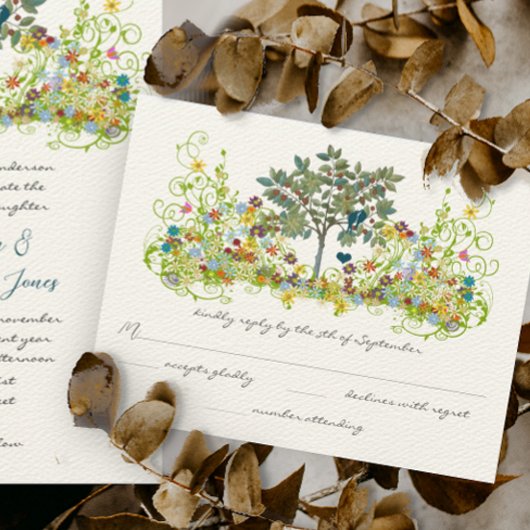 enderson
ate the
ughter
&
Jones
november
ent year
afternoon
st
eet
low
kindly reply by the 5th of September
M
accepts gladly
declines with regret
number attending